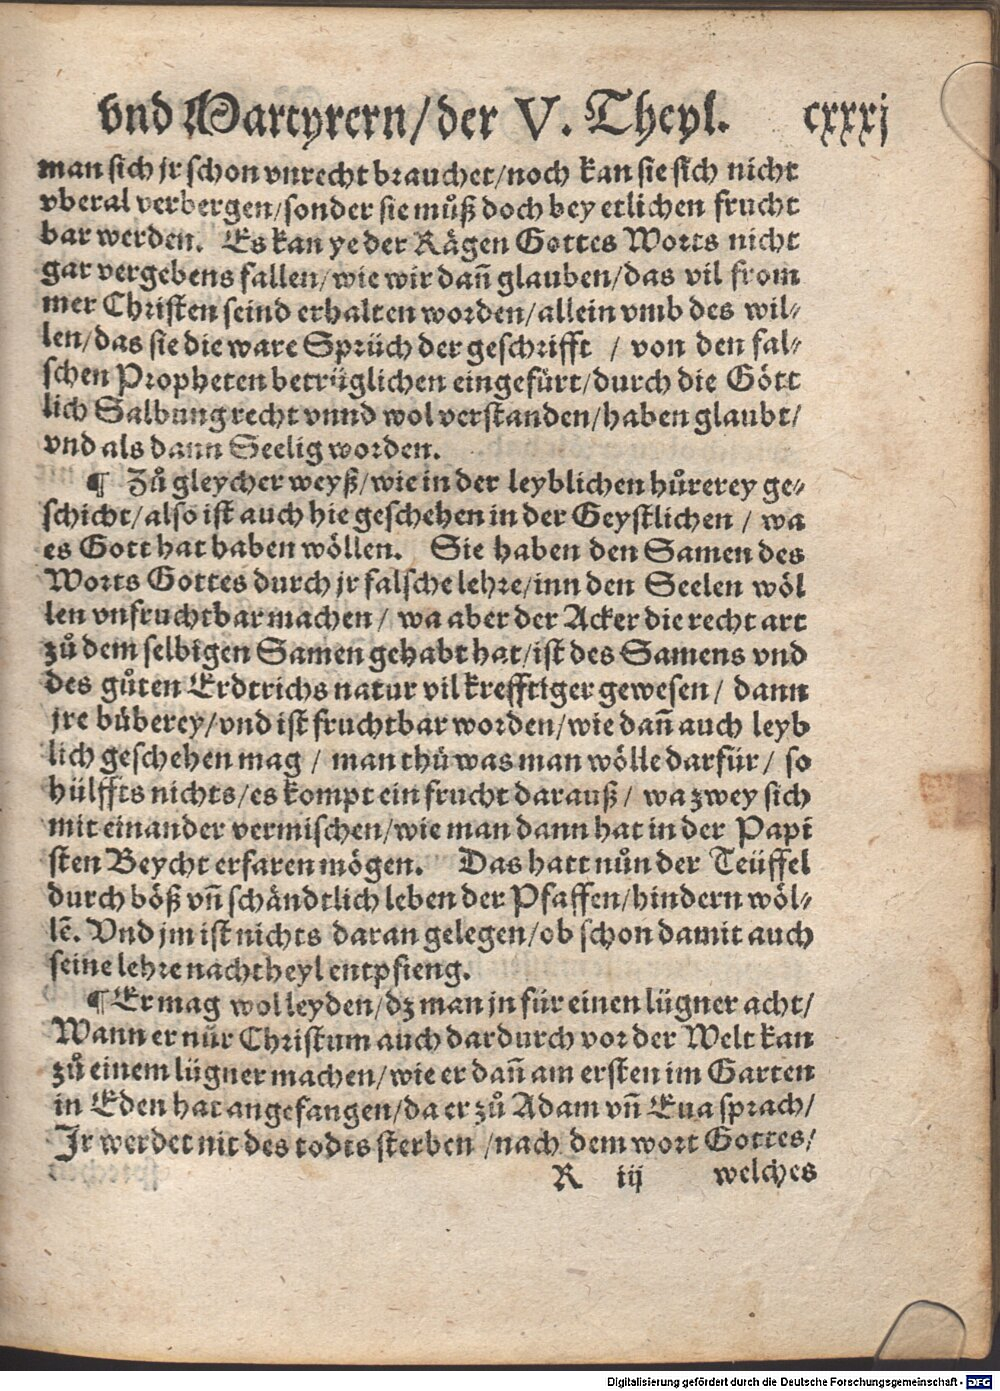 vnd Martyrern/der V. Theyl. cxxxj
man sich jr schon vnrecht brauchet/noch kan sie sich nicht
vberal verbergen/sonder sie můß doch bey etlichen frucht
bar werden. Es kan ye der Rägen Gottes Worts nicht
gar vergebens fallen/wie wir dañ glauben/das vil from
mer Christen seind erhalten worden/allein vmb des wil⸗
len/das sie die ware Sprüch der geschrifft / von den fal⸗
schen Propheten betrüglichen eingefürt/durch die Gött
lich Salbung recht vnnd wol verstanden/haben glaubt/
vnd als dann Seelig worden.
¶ Zů gleycher weyß/wie in der leyblichen hůrerey ge⸗
schicht/also ist auch hie geschehen in der Geystlichen / wa
es Gott hat haben wöllen. Sie haben den Samen des
Worts Gottes durch jr falsche lehre/inn den Seelen wöl
len vnfruchtbar machen / wa aber der Acker die recht art
zů dem selbigen Samen gehabt hat/ist des Samens vnd
des gůten Erdtrichs natur vil krefftiger gewesen / dann
jre büberey/vnd ist fruchtbar worden/wie dañ auch leyb
lich geschehen mag / man thü was man wölle darfür / so
hülffts nichts/es kompt ein frucht darauß / wa zwey sich
mit einander vermischen/wie man dann hat in der Papi
sten Beycht erfaren mögen. Das hatt nůn der Teüffel
durch böß vñ schändtlich leben der Pfaffen/hindern wöl⸗
lẽ. Vnd jm ist nichts daran gelegen/ob schon damit auch
seine lehre nachtheyl entpfieng.
¶ Er mag wol leyden/dz man jn für einen lügner acht/
Wann er nůr Christum auch dardurch vor der Welt kan
zů einem lügner machen/wie er dañ am ersten im Garten
in Eden hat angefangen/da er zů Adam vñ Eua sprach/
Jr werdet nit des todts sterben /nach dem wort Gottes/
R iij welches
Digitalisierung gefördert durch die Deutsche Forschungsgemeinschaft - DFG